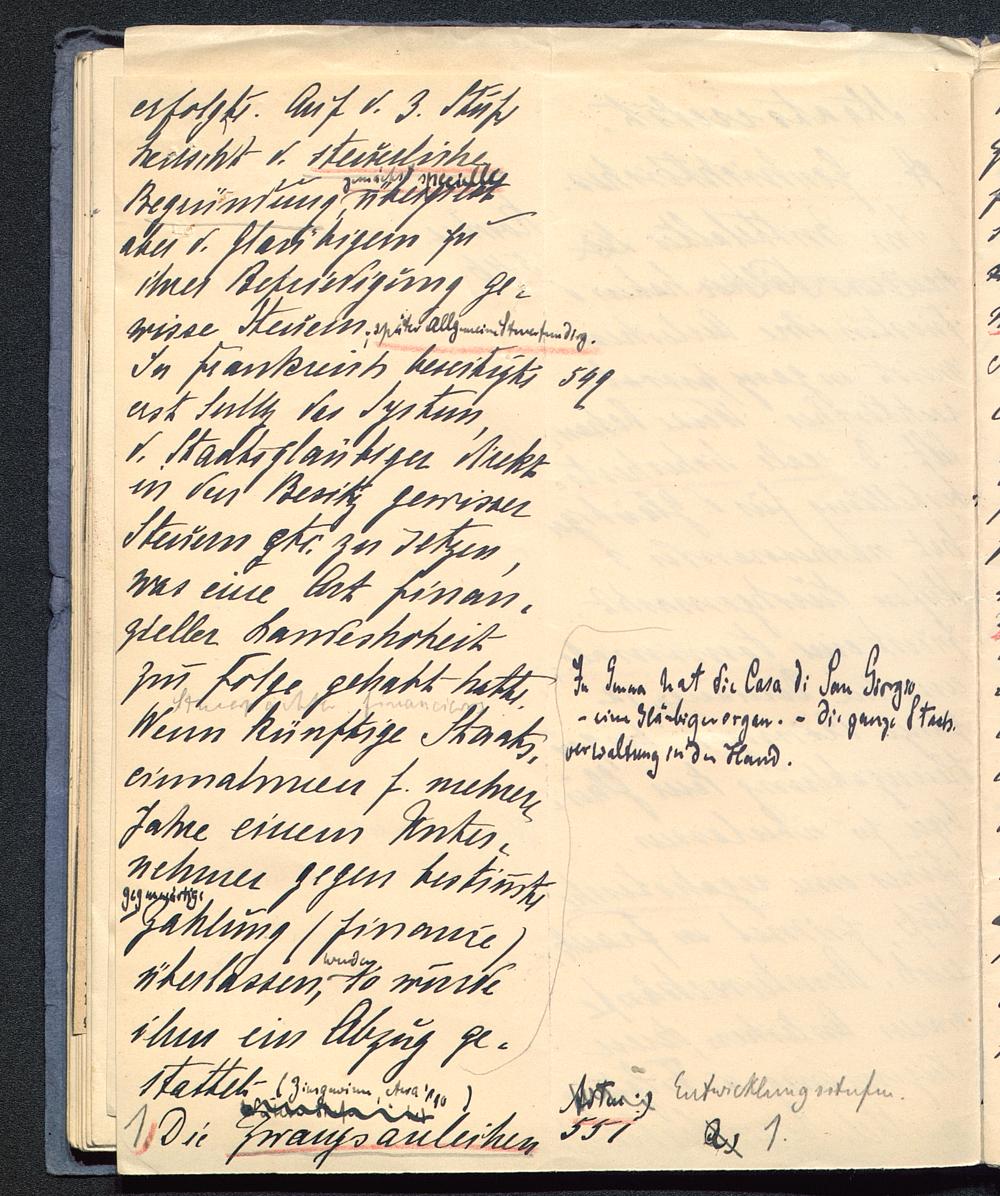 erfolgte. Auf d. 3. Stufe
herrscht d. steuerliche
zunächst specielle
Begründung,
aber d. Gläubigern zu
ihrer Befriedigung ge-
wisse Steuern, später allgemeine Steuerfundirg.
In Frankreich beseitigte 549
erst Sully das System,
d. Staatsgläubiger direkt
in den Besitz gewisser
Steuern etc. zu setzen,
was eine Art finan-
zieller Landeshoheit
zur Folge gehabt hatte.
Wenn künftige Staats-
einnahmen f. mehrere
Jahre einem Unter-
nehmer gegen bestimmte
gegenwärtige
Zahlung (finance)
überlassen wurden, so wurde
ihm ein Abzug ge-
stattet (Zinsgewinn,)
1) Die Zwangsanleihen
In Genua hat die Casa di San Giorgio
- eine Gläubigerorgan. - die ganze Staats-
verwaltung in der Hand.
Entwicklungsstufen.
551 1.